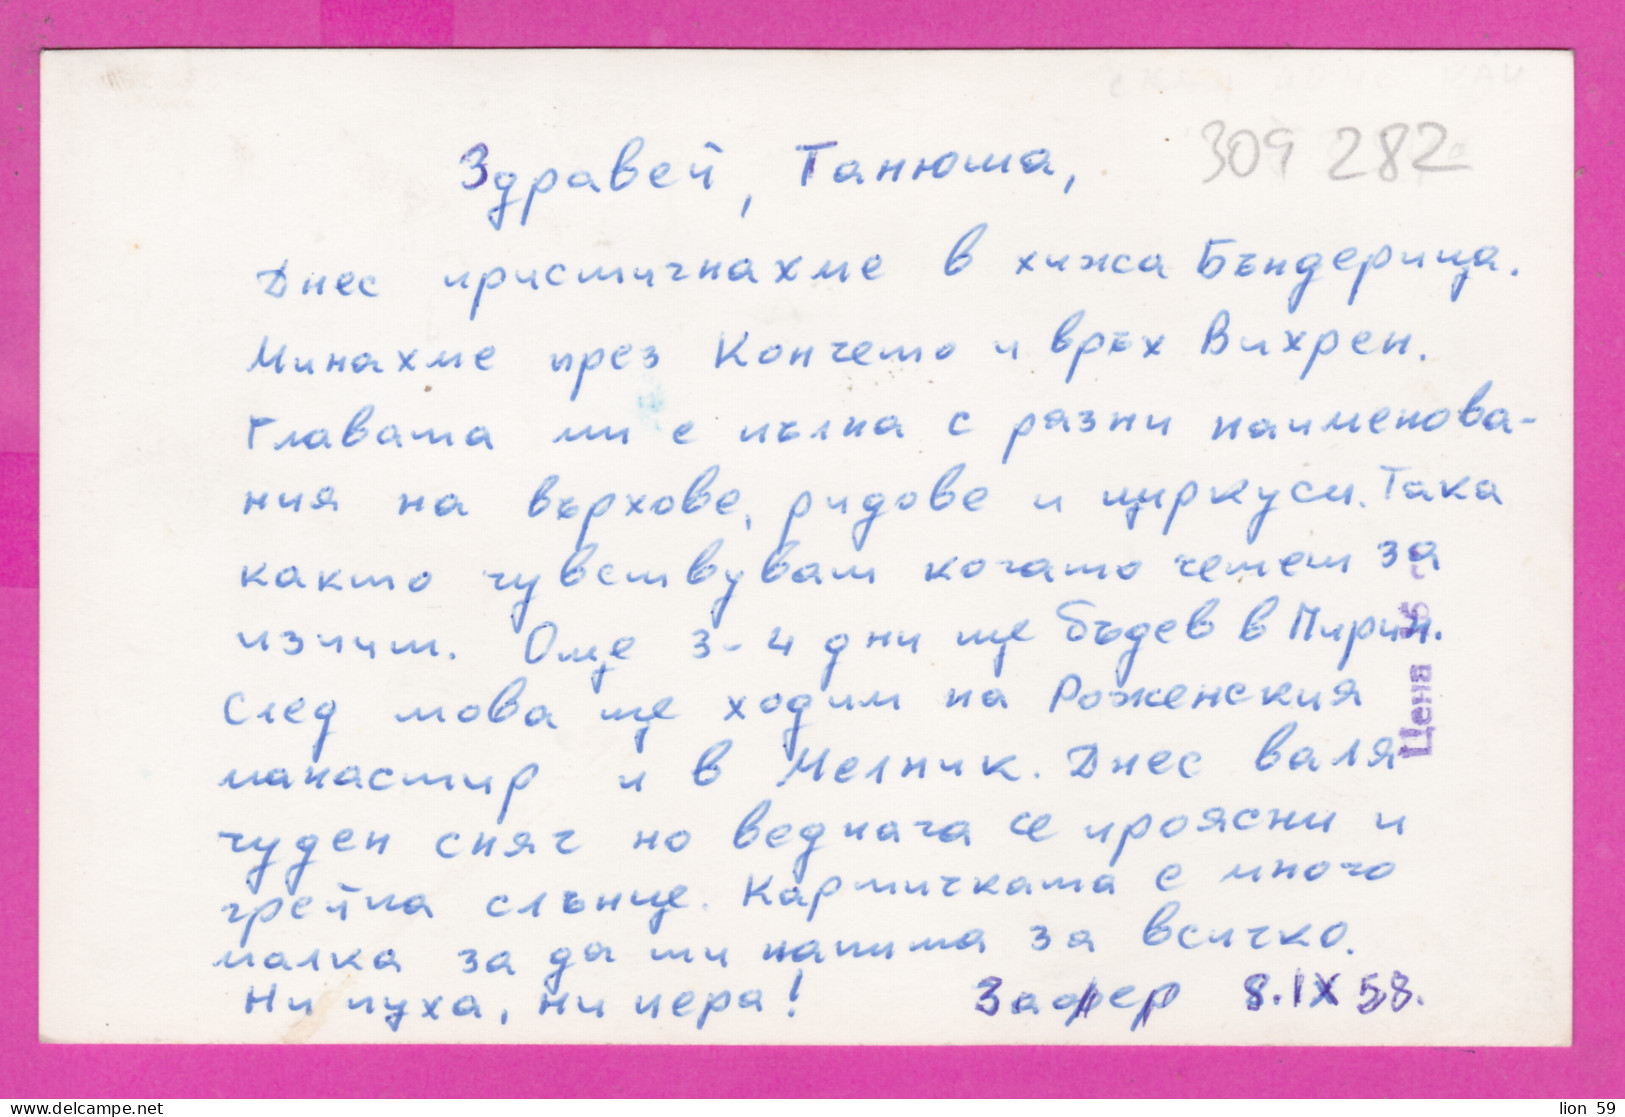 309 282
Здравей, Танюша,
Днес пристигнахме в хижа Бъндерица.
Минахме през Кончето и връх Вихрен.
Главата ми е пълна с разни наименова-
ния на върхове, ридове и циркуси. Така
както чувствувам когато четем за
изпит. Още 3-4 дни ще бъдев в Пирин.
След това ще ходим на Роженския
манастир и в Мелник. Днес валя
чуден сняг но веднага се проясни и
грейна слънце. Картичката е много
малка за да ти напиша за всичко.
Ни пуха, ни пера! Зафер 8.IX 58.
Цена
lion 59